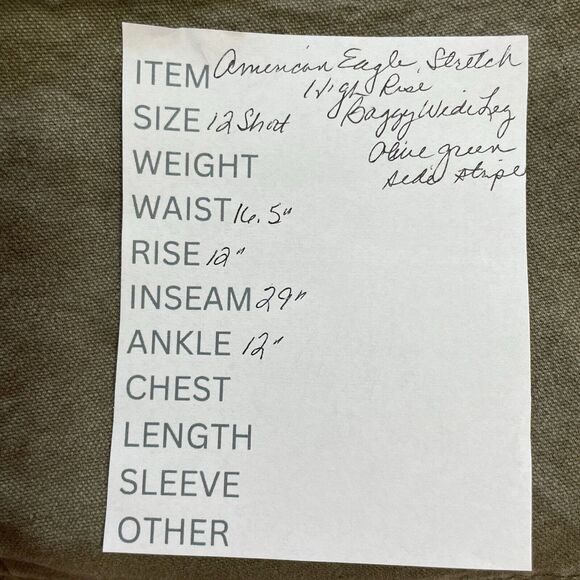 ITEM American Eagle Stretch
High Rise
SIZE 12 Short Baggy Wide Leg
WEIGHT Olive green
side stripe
WAIST 16.5"
RISE 12"
INSEAM 29"
ANKLE 12"
CHEST
LENGTH
SLEEVE
OTHER